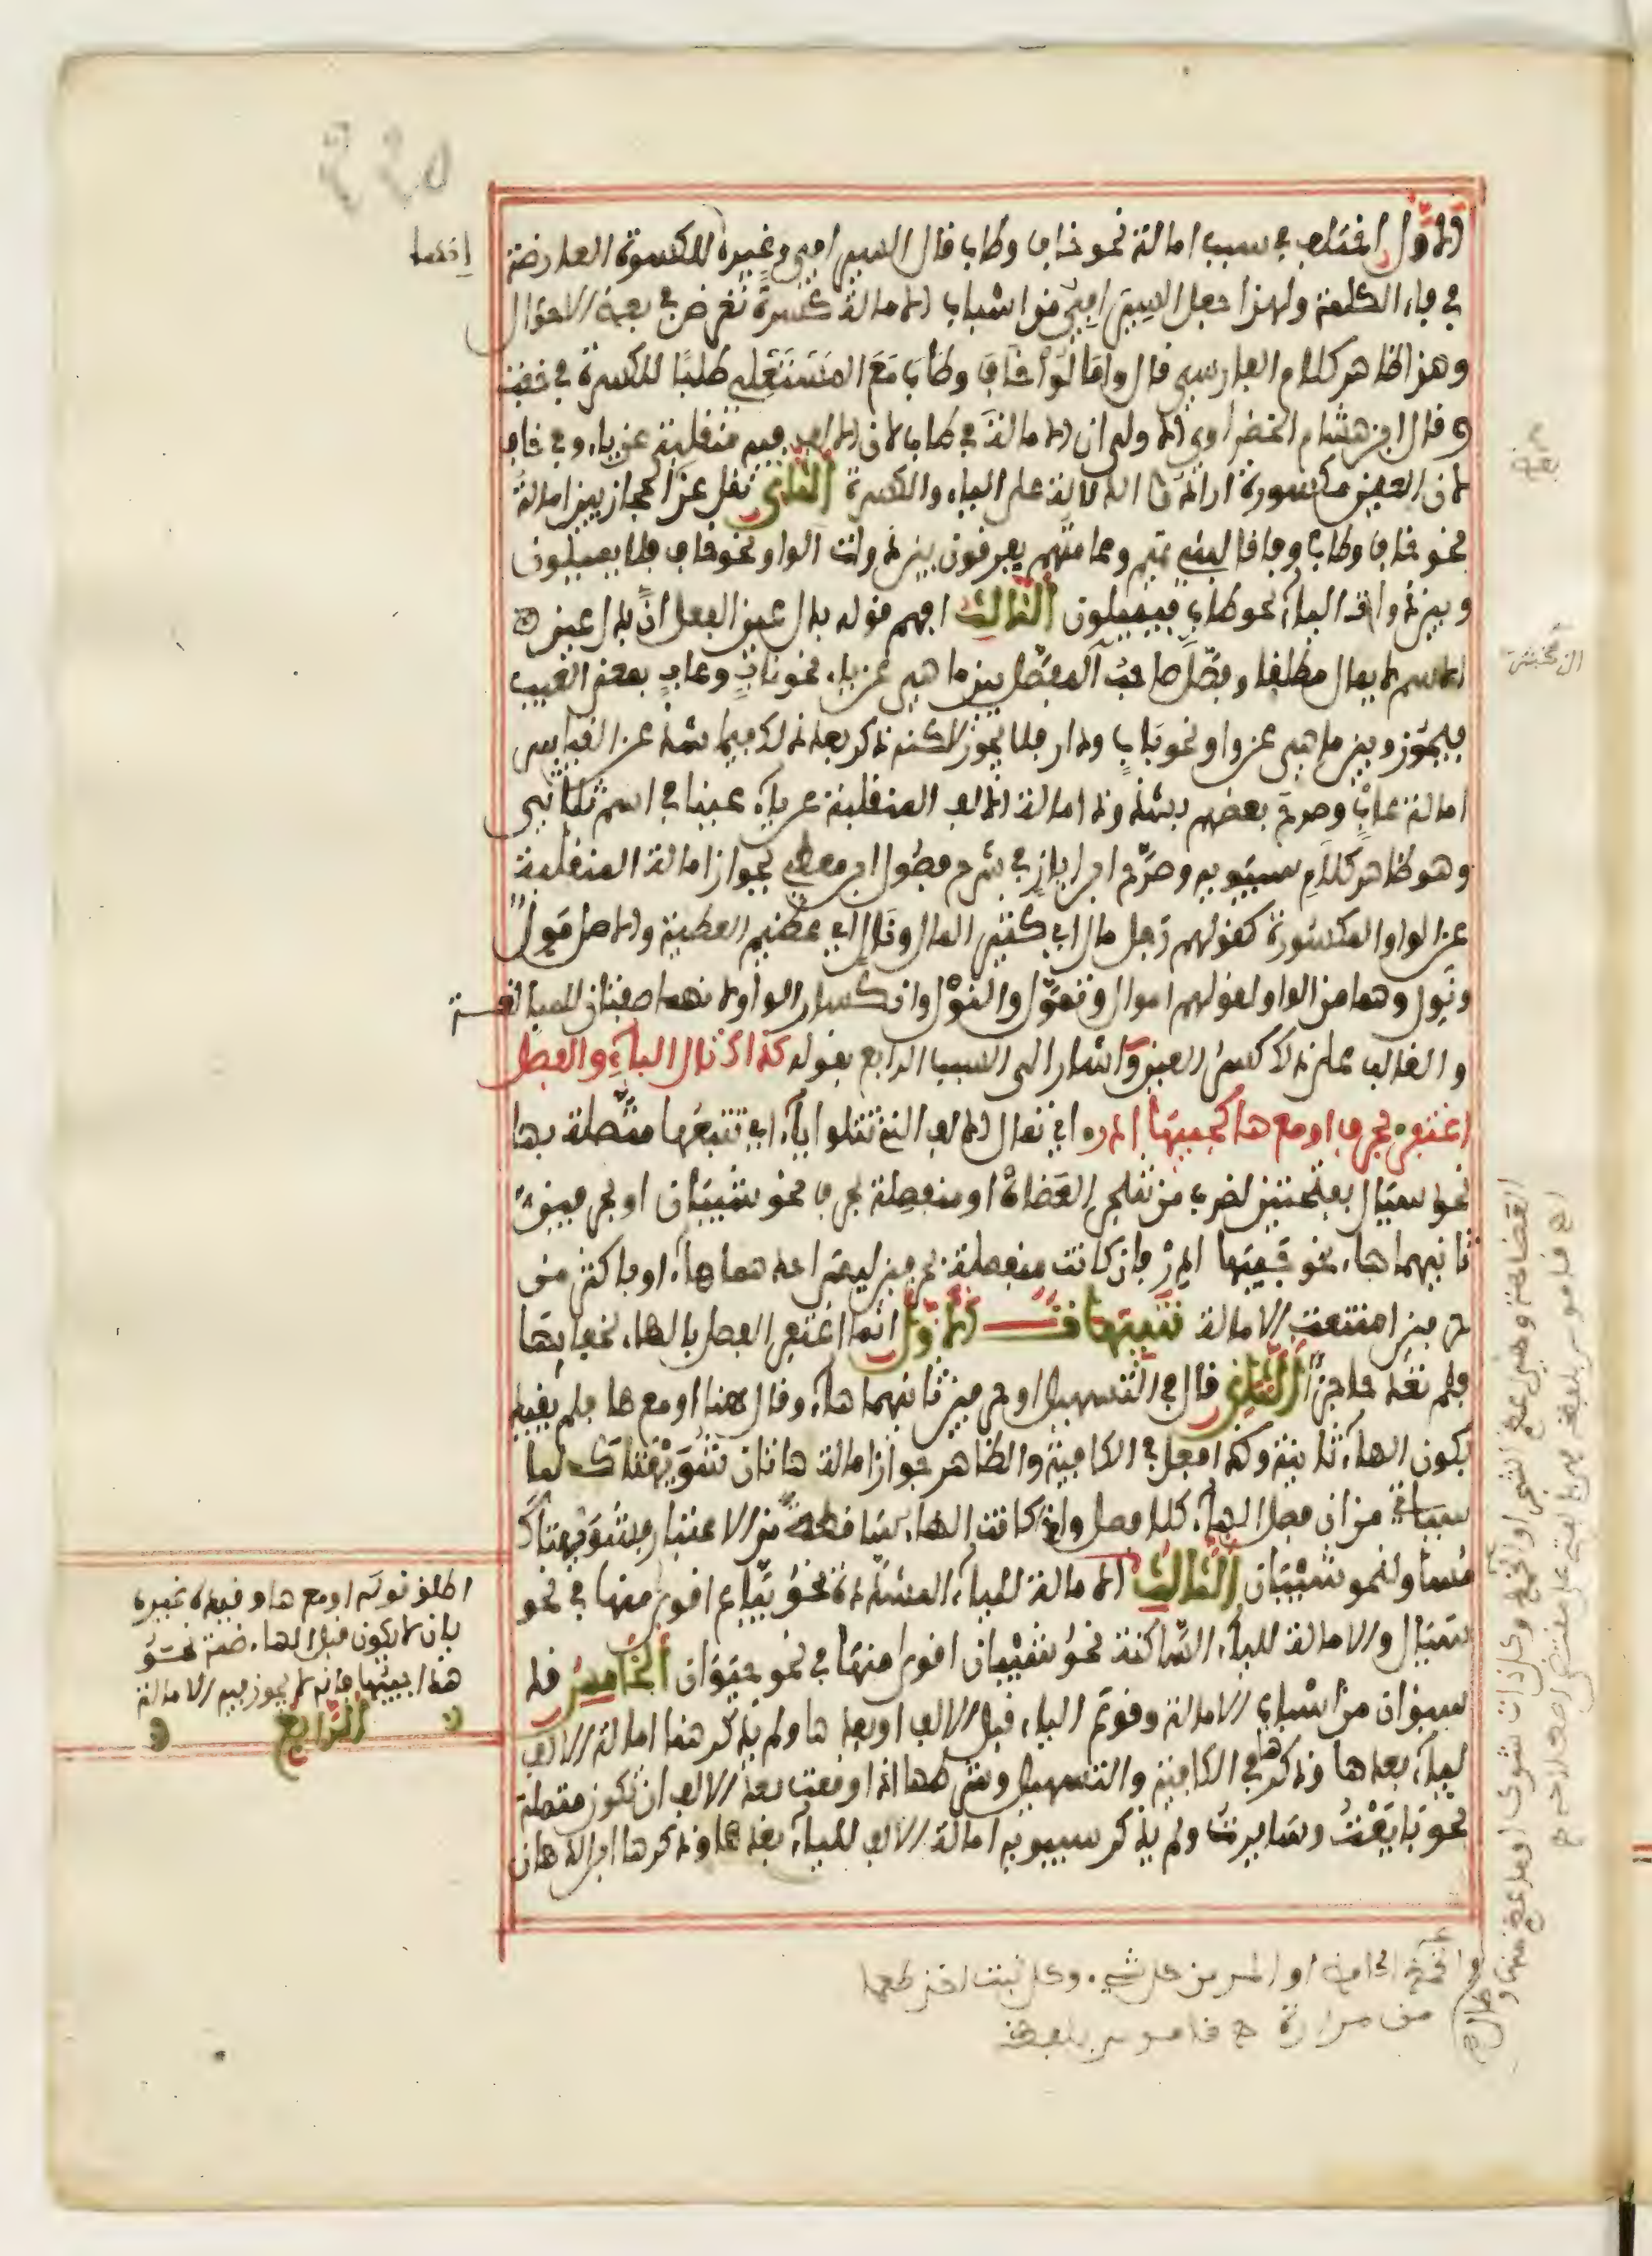 الاول اختلف في سبب امالة نحو خاف وطاب فال السيرافي وغيره للكسرة العارضة
في فاء الكلمة ولهذا جعل السيرافي من اسباب الامالة كسرة تعرض في بعض الاحوال
وهو ظاهر كلام الفارسي فال وامالوا خاف وطاب مع المستعلي طلبا للكسرة في خفت
وفال ابن هشام الخضراوي الاولى ان الامالة في طاب لان الالف فيه منفلبة عن ياء وفي خاف
لان العين مكسورة ارادوا الدلالة على الياء والكسرة الثاني نفل عن الحجازيين امالة
نحو خاف وطاب وفافا لبني تميم وعامتهم يفرفون بين ذوات الواو نحو خاف فلا يميلون
وبين ذوات الياء نحو طاب فيميلون الثالث افهم فوله بدل عين الفعل ان بدل عين
الاسم لا يمال مطلفا وفصل صاحب المفصل بين ما هي عن ياء نحو ناب وعاب بمعنى العيب
فيجوز وبين ما هي عن واو نحو باب ودار فلا يجوز لاكنه ذكر بعد ذلك فيما شذ عن الفياس
امالة عاب وصرح بعضهم بشذوذ امالة الالف المنفلبة عن ياء عينا في اسم ثلاثي
وهو ظاهر كلام سيبويه وصرح ابن اياز في شرح فصول ابن معطي بجواز امالة المنفلبة
عن الواو المكسورة كفولهم رجل مال اي كثير المال ونال اي عظيم العطية والاصل مول
ونول وهما من الواو لفولهم اموال وتمول والنول وانكسار الواو لانهما صفتان للمبالغة
والغالب على ذلك كسر العين واشار الى السبب الرابع بفوله كذاك تالي الياء والفصل
اغتفر بحرف او مع ها كجيبها ادر اي تمال الالف التي تتلو ياء اي تتبعها متصلة بها
نحو سيال بفتحتين لضرب من شجر العضاة او منفصلة بحرف نحو شيبان او بحرفين
ثانيهما هاء نحو جيبها ادر فان كانت منفصلة بحرفين ليس احدهما هاء او باكثر من
حرفين امتنعت الامالة تنبيهات الاول انما اغتفر الفصل بالهاء لخفائها
فلم تعد حاجزا الثاني فال في التسهيل او حرفين ثانيهما هاء وفال هنا او مع ها فلم يفيد
بكون الهاء ثانية وكذا فعل في الكافية والظاهر جواز امالة هاتان شويهتاك لما
سياتي من ان فصل الهاء كلا فصل واذا كانت الهاء سافطة من الاعتبار فشويهتاك
مساو لنحو شيبان الثالث الامالة للياء المشددة نحو بياع افوى منها في نحو
سيال والامالة للياء الساكنة نحو شيبان افوى منها في نحو حيوان الخامس فد
سبق ان من اسباب الامالة وفوع الياء فبل الالف او بعدها ولم يذكر هنا امالة الالف
لياء بعدها وذكرها في الكافية والتسهيل وشرطها اذا وفعت بعد الالف ان تكون متصلة
نحو بايعت وسايرت ولم يذكر سيبويه امالة الالف للياء بعدها وذكرها ابن الدهان
اطلق فوله او مع ها وفيده غيره
بان لا يكون فبل الهاء ضمة نحو
هذا جيبها فانه لا يجوز فيه الامالة
الرابع